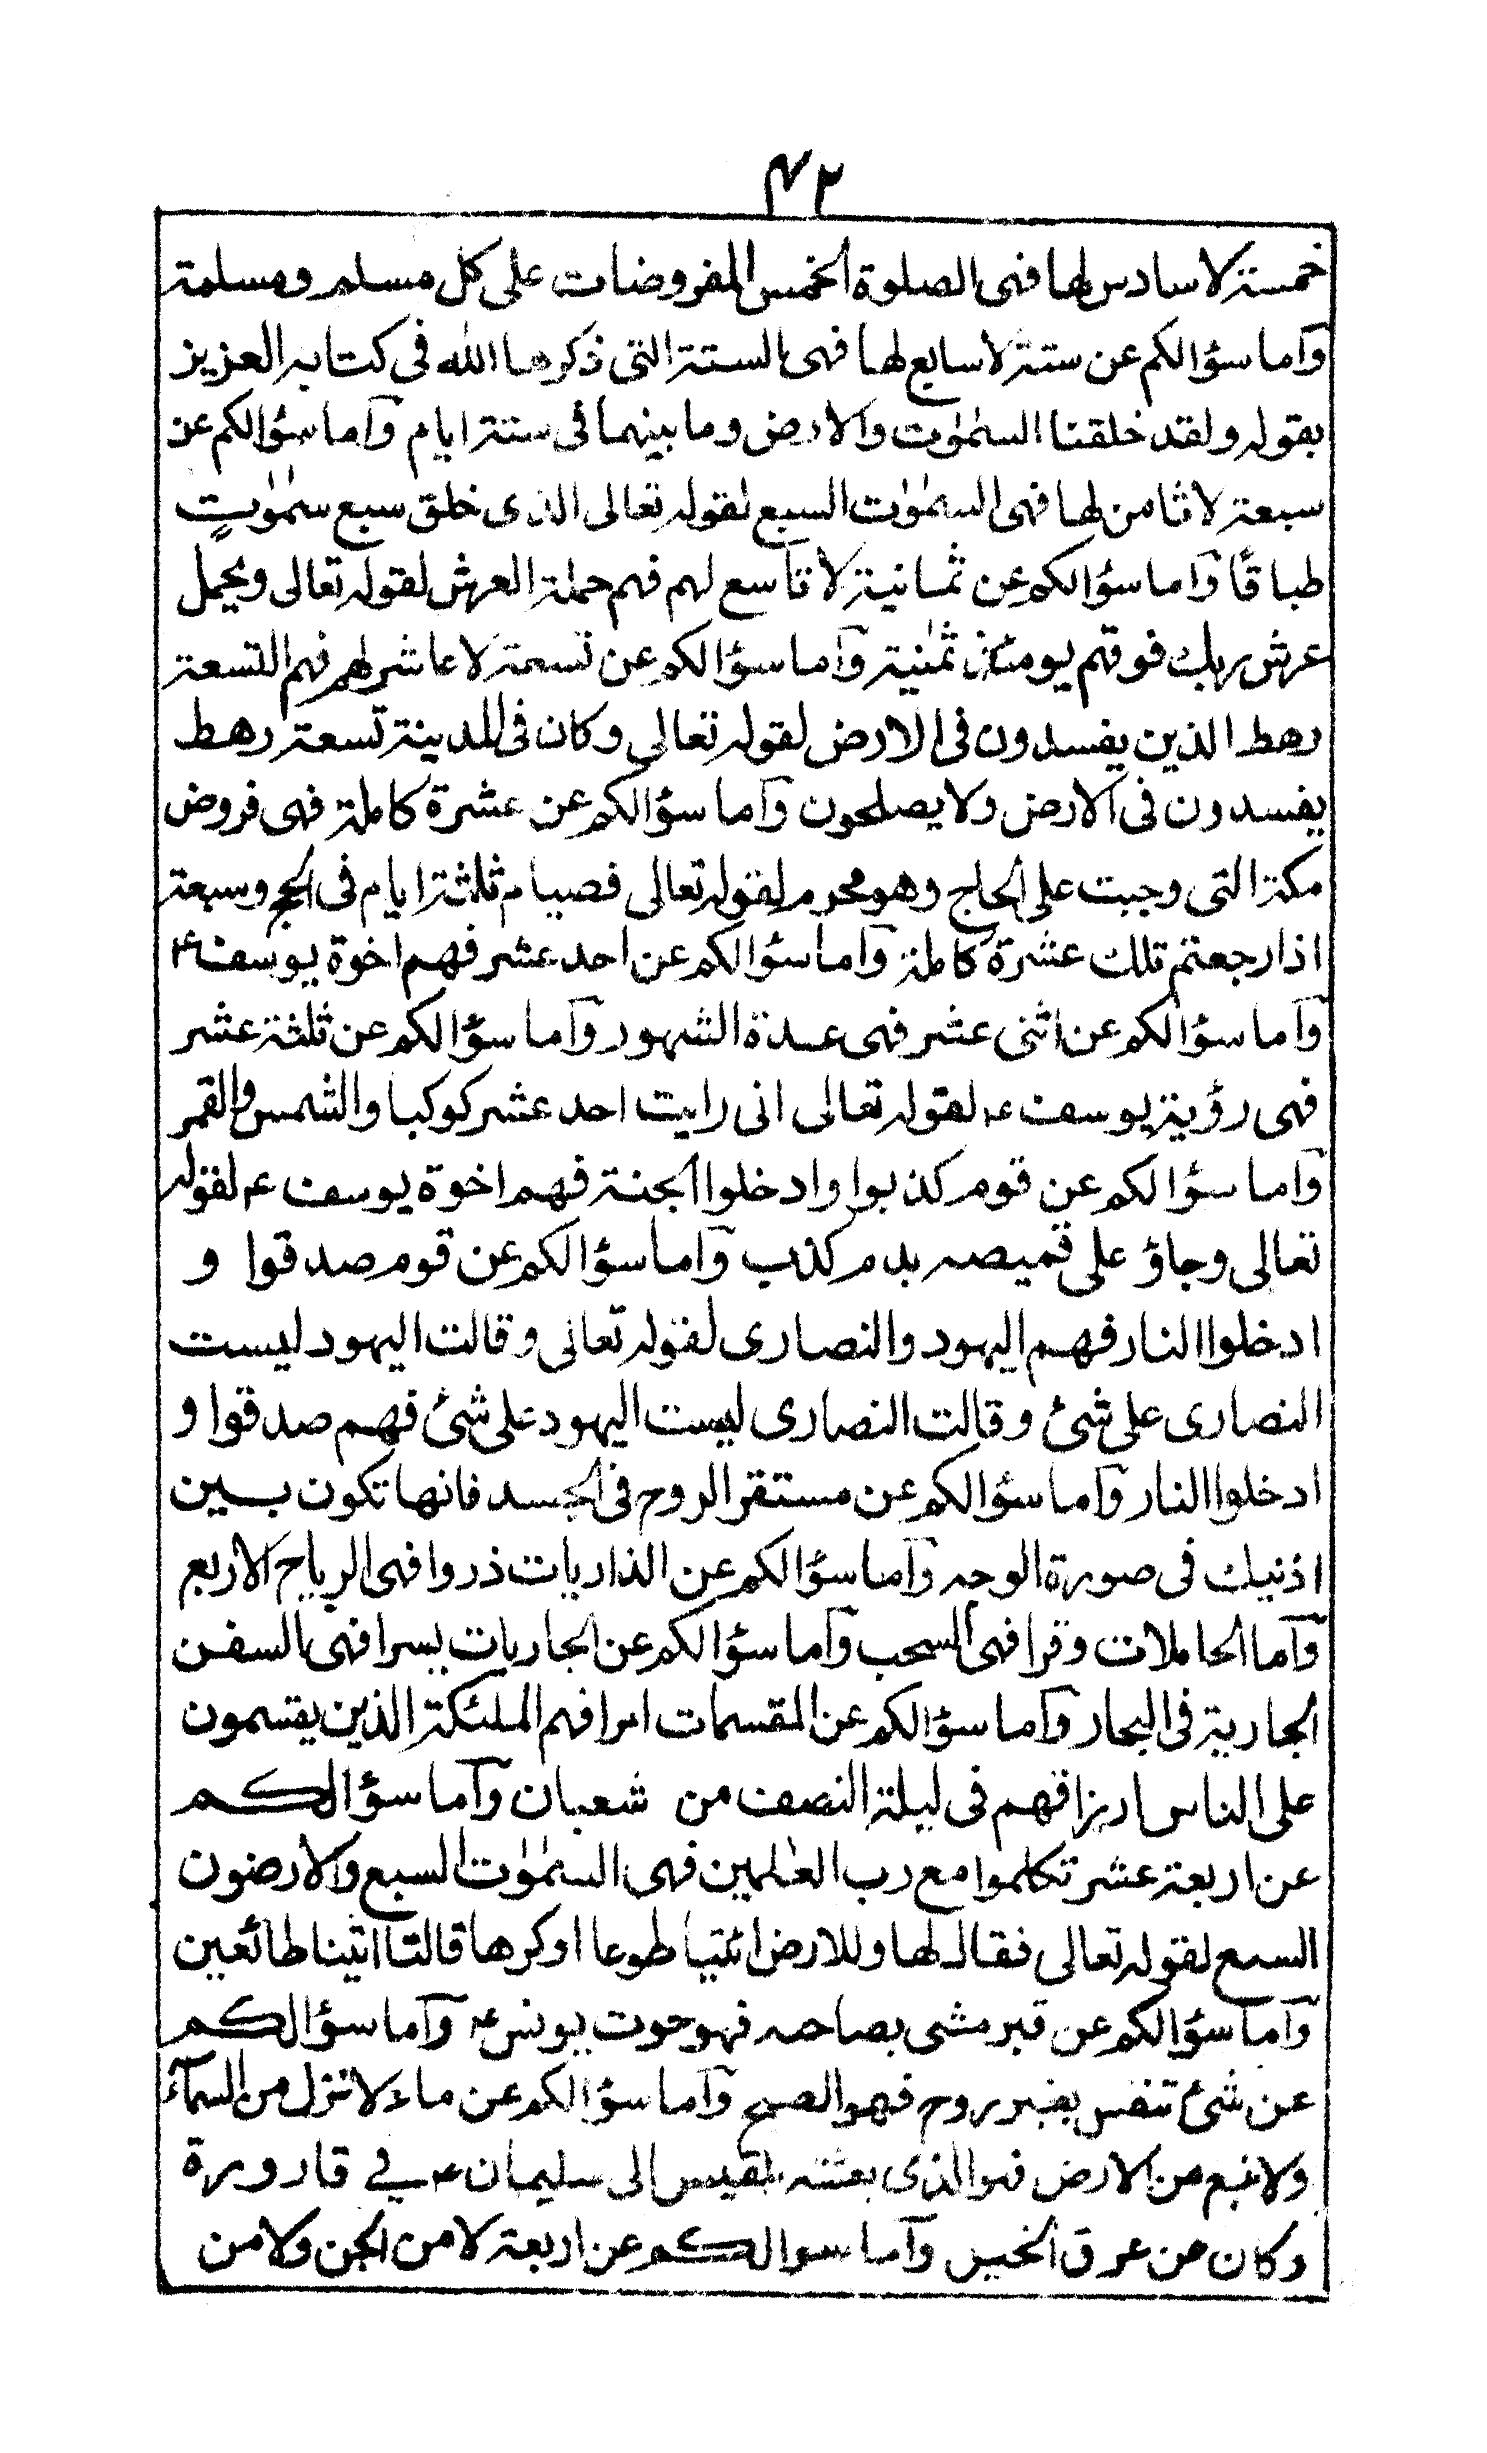 ٤٢
خمسة لا سادس لها فهى الصلوة الخمس المفروضات على كل مسلم ومسلمة
وآما سؤالكم عن ستة لا سابع لها فهى الستة التى ذكرها الله فى كتابه العزيز
بقوله ولقد خلقنا السمٰوٰت والارض وما بينهما فى ستة ايام وآما سؤالكم عن
سبعة لا ثامن لها فهى السمٰوٰت السبع لقوله تعالى الذى خلق سبع سمٰوٰتٍ
طباقًا وآما سؤالكم عن ثمانية لا تاسع لهم فهم حملة العرش لقوله تعالى ويحمل
عرش ربك فوقهم يومئذ ثمٰنية وآما سؤالكم عن تسعة لا عاشر لهم فهم التسعة
رهط الذين يفسدون فى الارض لقوله تعالى وكان فى المدينة تسعة رهط
يفسدون فى الارض ولا يصلحون وآما سؤالكم عن عشرة كاملة فهى فروض
مكة التى وجبت على الحاج وهو محرم لقوله تعالى فصيام ثلثة ايام فى الحج وسبعة
اذا رجعتم تلك عشرة كاملة وآما سؤالكم عن احد عشر فهم اخوة يوسف ع
وآما سؤالكم عن اثنى عشر فهى عدة الشهور وآما سؤالكم عن ثلثة عشر
فهى رؤية يوسف ع لقوله تعالى انى رايت احد عشر كوكبا والشمس والقمر
وآما سؤالكم عن قوم كذبوا وادخلوا الجنة فهم اخوة يوسف ع لقوله
تعالى وجاؤ على قميصه بدم كذب وآما سؤالكم عن قوم صدقوا و
ادخلوا النار فهم اليهود والنصارى لقوله تعالى وقالت اليهود ليست
النصارى على شئ وقالت النصارى ليست اليهود على شئ فهم صدقوا و
ادخلوا النار وآما سؤالكم عن مستقر الروح فى الجسد فانها تكون بين
اذنيك فى صورة الوجه وآما سؤالكم عن الذاريات ذروا فهى الرياح الاربع
وآما الحاملات وقرا فهى السحب وآما سؤالكم عن الجاريات يسرا فهى السفن
الجارية فى البحار وآما سؤالكم عن المقسمات امرا فهم الملئكة الذين يقسمون
على الناس ارزاقهم فى ليلة النصف من شعبان وآما سؤالكم
عن اربعة عشر تكلموا مع رب العٰلمين فهى السمٰوٰت السبع والارضون
السبع لقوله تعالى فقال لها وللارض ائتيا طوعا او كرها قالتا اتينا طائعين
وآما سؤالكم عن قبر مشى بصاحبه فهو حوت يونس ع وآما سؤالكم
عن شئ تنفس بغير روح فهو الصبح وآما سؤالكم عن ماء لا نزل من السمآء
ولا نبع من الارض فهو الذى بعثته بلقيس الى سليمان ع فى قارورة
وكان من عرق الخيل وآما سوالكم عن اربعة لا من الجن ولا من